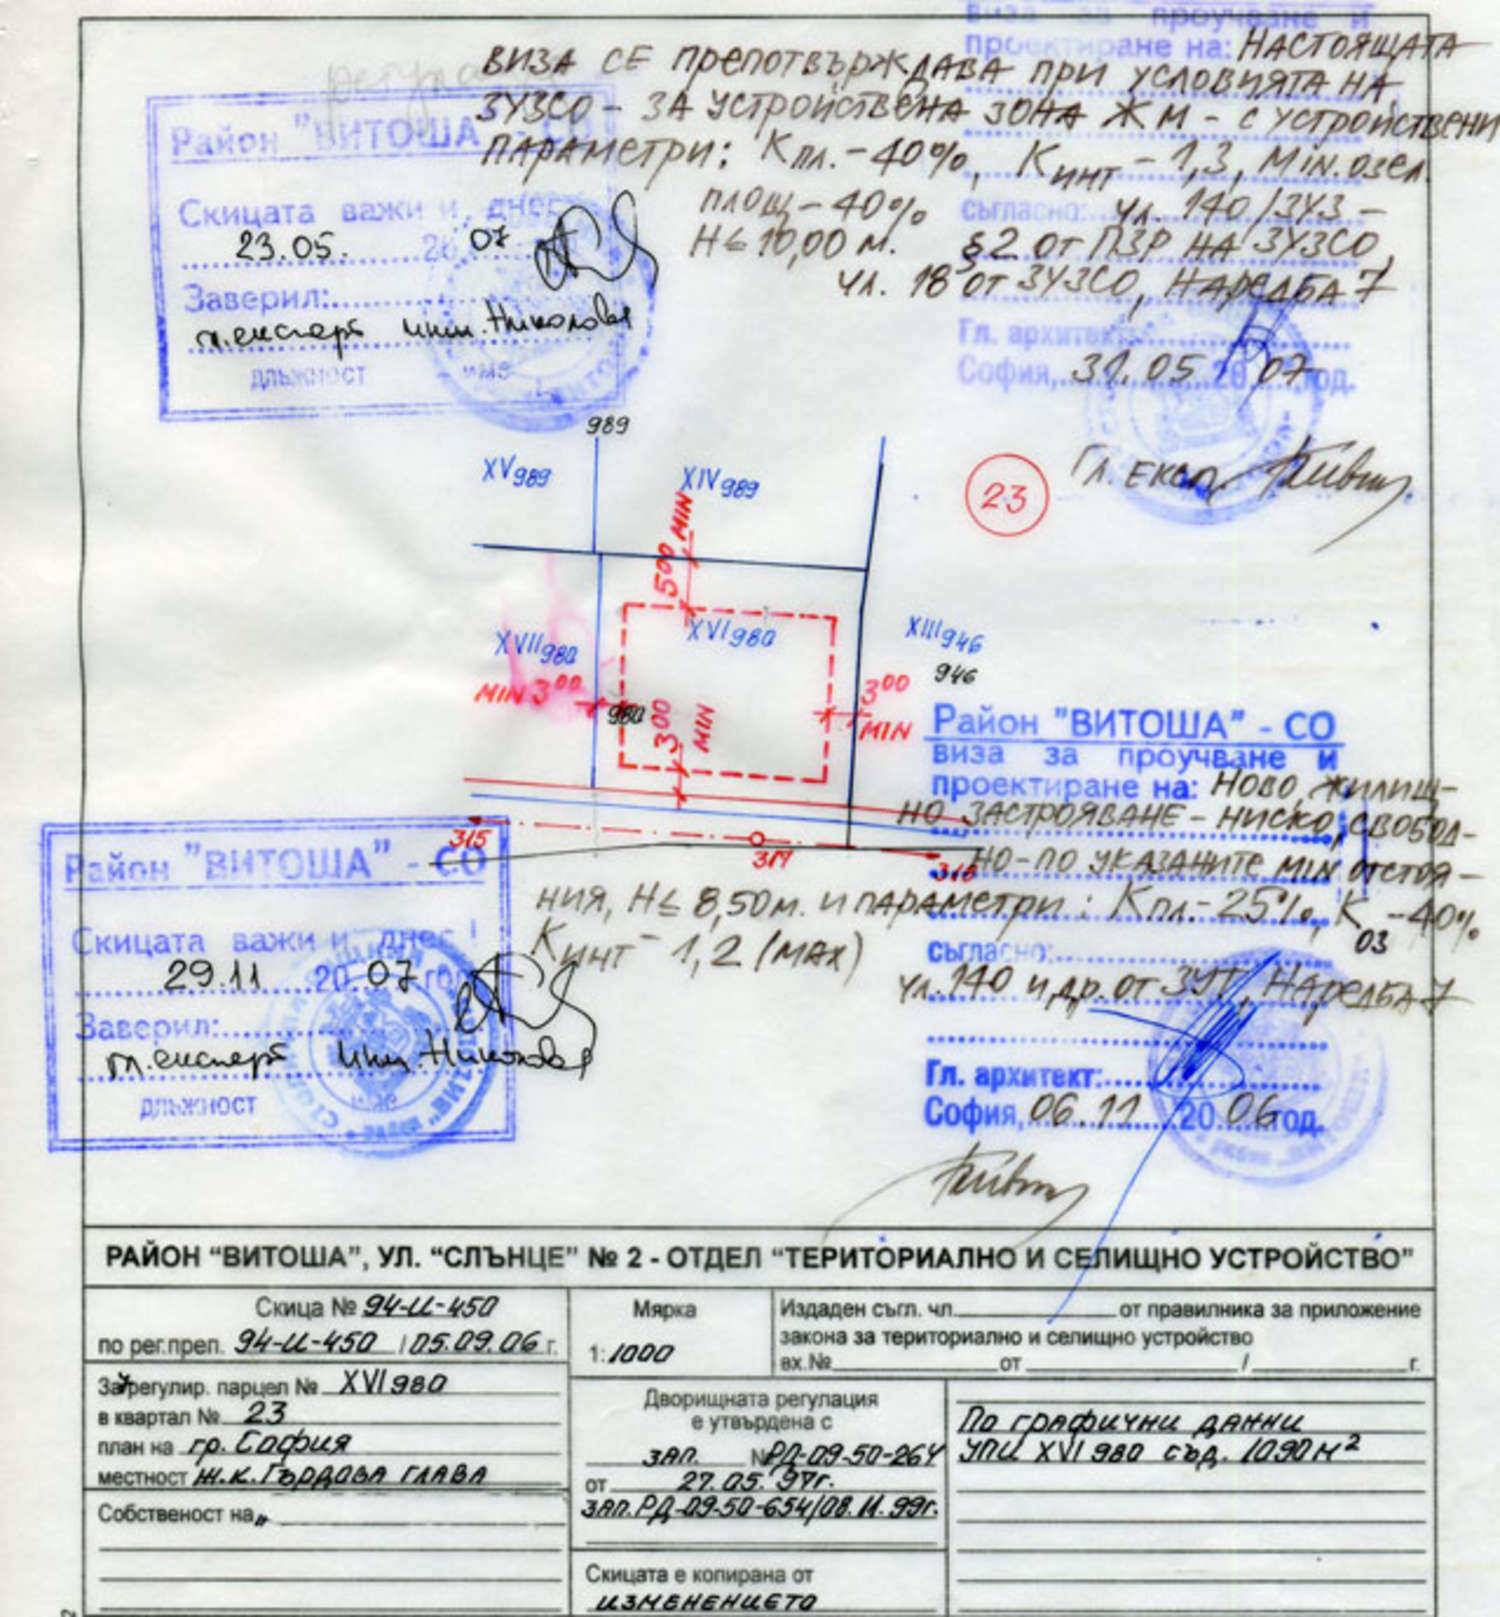 виза за проучване и
проектиране на: НАСТОЯЩАТА
ВИЗА СЕ ПРЕПОТВЪРЖДАВА ПРИ УСЛОВИЯТА НА
ЗУЗСО - ЗА УСТРОЙСТВЕНА ЗОНА ЖМ - С УСТРОЙСТВЕНИ
ПАРАМЕТРИ: Кпл. - 40%, Кинт - 1,3, MIN. ОЗЕЛ.
ПЛОЩ - 40%
H ≤ 10,00 м.
съгласно: чл. 140/ЗУЗ -
§2 ОТ ПЗР НА ЗУЗСО,
чл. 18 ОТ ЗУЗСО, НАРЕДБА 7
Гл. архитект:
София, 31.05 20 07 год.
Гл. ЕКСП.
Район "ВИТОША" - СО
Скицата важи и днес
23.05. 20 07
Заверил:
гл. експерт инж. Николова
длъжност име
989
XV 989
XIV 989
23
5⁰⁰ MIN
XVII 980
XVI 980
XIII 946
946
MIN 3⁰⁰
980
3⁰⁰ MIN
3⁰⁰
MIN
315
317
316
Район "ВИТОША" - СО
виза за проучване и
проектиране на: НОВО ЖИЛИЩ-
НО ЗАСТРОЯВАНЕ - НИСКО, СВОБОД-
НО - ПО УКАЗАНИТЕ MIN ОТСТОЯ-
НИЯ, H ≤ 8,50м. И ПАРАМЕТРИ: Кпл. - 25%, Коз - 40%
Кинт - 1,2 (MAX)
съгласно:
чл. 140 и др. от ЗУТ, НАРЕДБА 7
Гл. архитект:
София, 06.11 20 06 год.
Район "ВИТОША" - СО
Скицата важи и днес
29.11 20 07 год
Заверил:
гл. експерт инж. Николова
длъжност име
РАЙОН “ВИТОША”, УЛ. “СЛЪНЦЕ” № 2 - ОТДЕЛ “ТЕРИТОРИАЛНО И СЕЛИЩНО УСТРОЙСТВО”
Скица № 94-И-450
по рег.преп. 94-И-450 / 05.09.06 г.
Мярка
1:1000
Издаден съгл. чл. от правилника за приложение
закона за териториално и селищно устройство
вх.№ от / г.
За регулир. парцел № XVI 980
в квартал № 23
план на гр. София
местност ж.к. Гърдова глава
Собственост на
Дворищната регулация
е утвърдена с
зап. № РД-09-50-264
от 27.05.97г.
зап. РД-09-50-654/08.11.99г.
Скицата е копирана от
изменението
По графични данни
УПИ XVI 980 съд. 1090м²